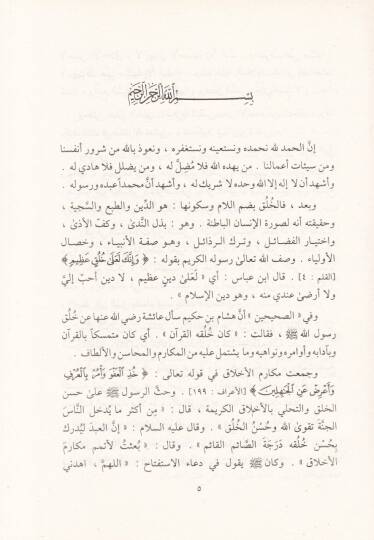 بسم الله الرحمن الرحيم
إنَّ الحمد لله نحمده ونستعينه ونستغفره ، ونعوذ بالله من شرور أنفسنا
ومن سيئات أعمالنا . من يهده الله فلا مُضِلَّ له ، ومن يضلل فلا هادي له .
وأشهد أن لا إله إلا الله وحده لا شريك له ، وأشهد أنَّ محمداً عبده ورسوله .
وبعد ، فالخُلُق بضم اللام وسكونها : هو الدِّين والطبع والسَّجية ،
وحقيقته أنه لصورة الإنسان الباطنة . وهو : بذل النَّدىٰ ، وكفّ الأذىٰ ،
واختيار الفضائل ، وترك الرذائل ، وهو صفة الأنبياء ، وخصال
الأولياء . وصف الله تعالىٰ رسوله الكريم بقوله : ﴿ وَإِنَّكَ لَعَلَىٰ خُلُقٍ عَظِيمٍ ﴾
[القلم : ٤] . قال ابن عباس : أي « لَعَلىٰ دينٍ عظيم ، لا دين أحبّ إليَّ
ولا أرضىٰ عندي منه ، وهو دين الإسلام » .
وفي « الصحيحين » أنَّ هشام بن حكيم سأل عائشة رضي الله عنها عن خُلُق
رسول الله ﷺ ، فقالت : « كان خُلُقه القرآن » . أي كان متمسكاً بالقرآن
وبآدابه وأوامره ونواهيه وما يشتمل عليه من المكارم والمحاسن والألطاف .
وجمعت مكارم الأخلاق في قوله تعالى : ﴿ خُذِ الْعَفْوَ وَأْمُرْ بِالْعُرْفِ
وَأَعْرِضْ عَنِ الْجَاهِلِينَ ﴾ [الأعراف : ١٩٩] . وحثَّ الرسول ﷺ علىٰ حسن
الخلق والتحلي بالأخلاق الكريمة ، قال : « مِن أكثر ما يُدخل النَّاسَ
الجنَّةَ تقوىٰ الله وحُسْنُ الخُلُق » . وقال عليه السلام : « إنَّ العبدَ ليُدرك
بِحُسْن خُلُقه دَرَجَةَ الصَّائم القائم » . وقال : « بُعثتُ لأتمم مكارمَ
الأخلاق » . وكان ﷺ يقول في دعاء الاستفتاح : « اللهمَّ ، اهدني
٥